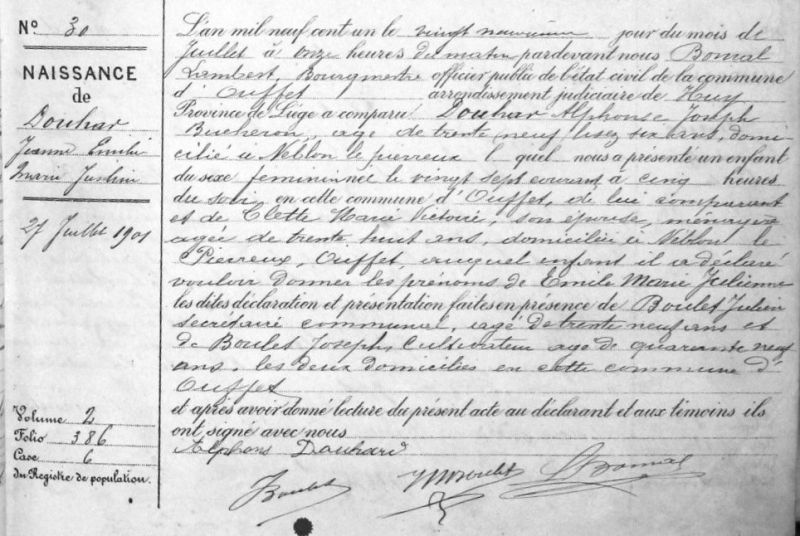 N° 30
NAISSANCE
de
Douhar
Jeanne Emilie
Marie Julien
27 Juillet 1901
Volume 2
Folio 386
Case 6
du Registre de population.
L'an mil neuf cent un le vingt neuvième jour du mois de
Juillet à onze heures du matin pardevant nous Bomal
Lambert, Bourgmestre officier public de l'état civil de la commune
d'Ouffet arrondissement judiciaire de Huy
Province de Liége a comparu Douhar Alphonse Joseph
Bucheron, age de trente neuf lisez six ans, domi
cilié à Neblon le pierreux lequel nous a présenté un enfant
du sexe femininnel le vingt sept courant à cinq heures
du soir, en cette commune d'Ouffet, de lui comparant
et de Clette Marie Victoire, son épouse, ménagère
agée de trente huit ans, domiciliée à Néblon le
Pierreux, Ouffet, auquel enfant il a déclaré
vouloir donner les prénoms de Emile Marie Julienne
les dites déclaration et présentation faites en présence de Boulet Julien
secrétaire communal, agé de trente neuf ans et
de Boulet Joseph, Cultivateur age de quarante neuf
ans, les deux domiciliés en cette commune d'
Ouffet
et après avoir donné lecture du présent acte au déclarant et aux témoins ils
ont signé avec nous
Alphons Douhard
J Boulet Boulet L Bomal